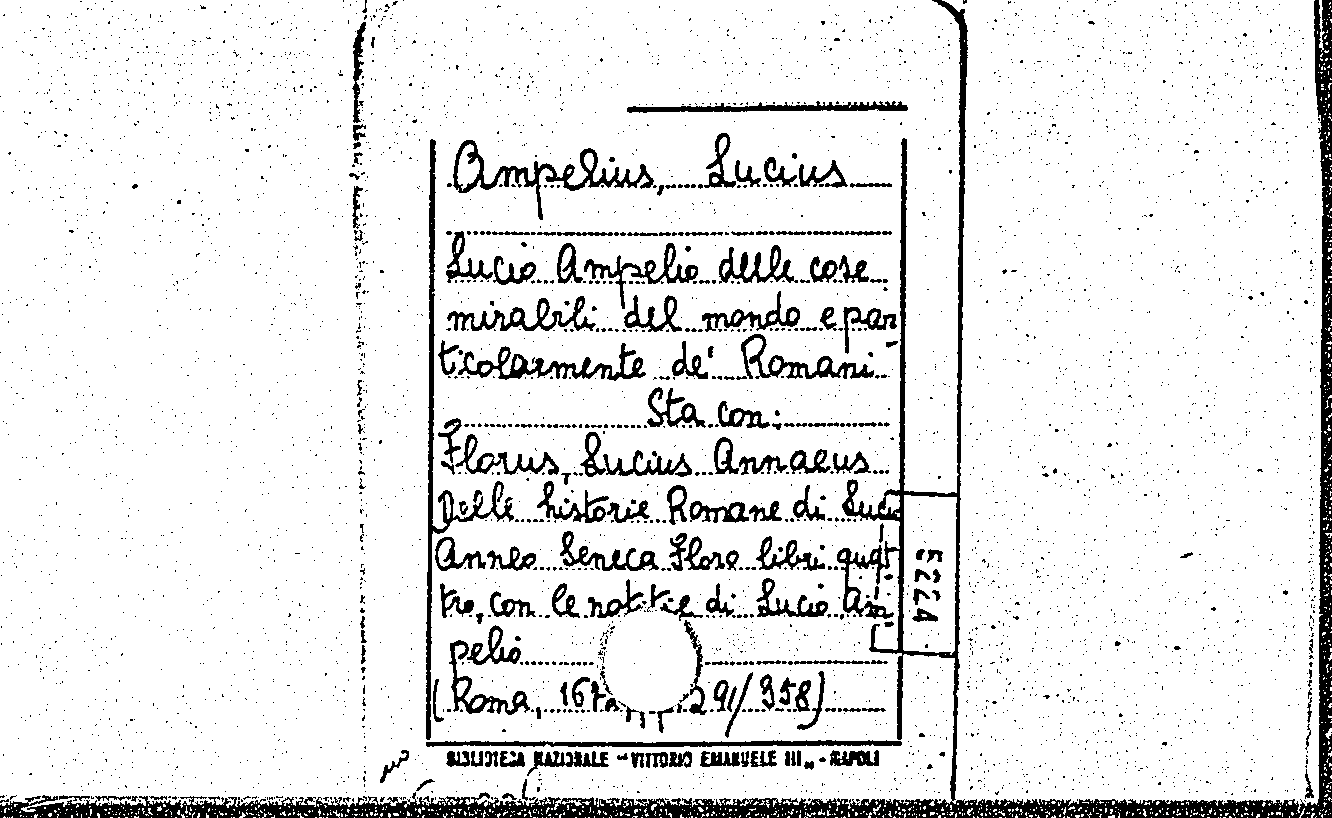 Ampelius, Lucius
Lucio Ampelio delle cose
mirabili del mondo e par
ticolarmente de' Romani
Sta con:
Florus, Lucius Annaeus
Delle historie Romane di Lucio
Anneo Seneca Floro libri quat
tro, con le notitie di Lucio Am
pelio
(Roma, 291/358)
BIBLIOTECA NAZIONALE "VITTORIO EMANUELE III" - NAPOLI